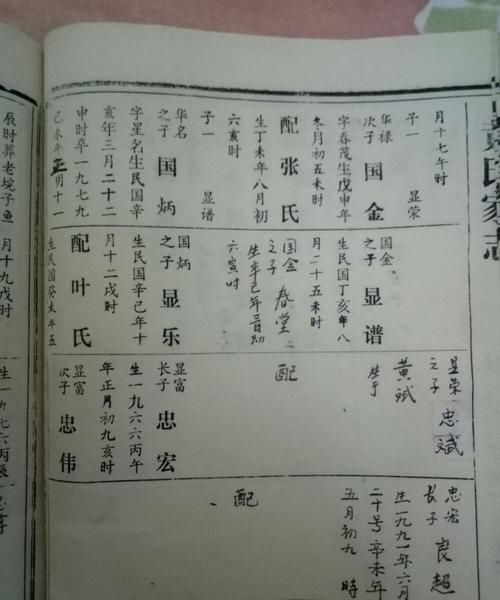 月十七午时
子一 显荣
华禄
次子 国金
字春茂生戊申年
冬月初五未时
配张氏
生丁未年八月初
六亥时
子一 显谱
华名
之子 国炳
字星名生民国辛
亥年三月二十二
申时卒一九七九
己未年正月十一
国金
之子 显谱
生民国丁亥年八
月二十五未时
国金
之子 春堂
生辛巳年三月初
六寅时
国炳
之子 显乐
生民国辛巳年十
月十二戌时
配叶氏
生民国癸未年五
显荣
之子 忠斌
黄斌
生于
配
显富
长子 忠宏
生一九六六丙午
年正月初九亥时
显富
次子 忠伟
忠宏
长子 良超
生一九九一年六月
二十号辛未年
五月初九 时
配
辰时葬老垸子鱼
月十九戌时
生一九七六丙辰